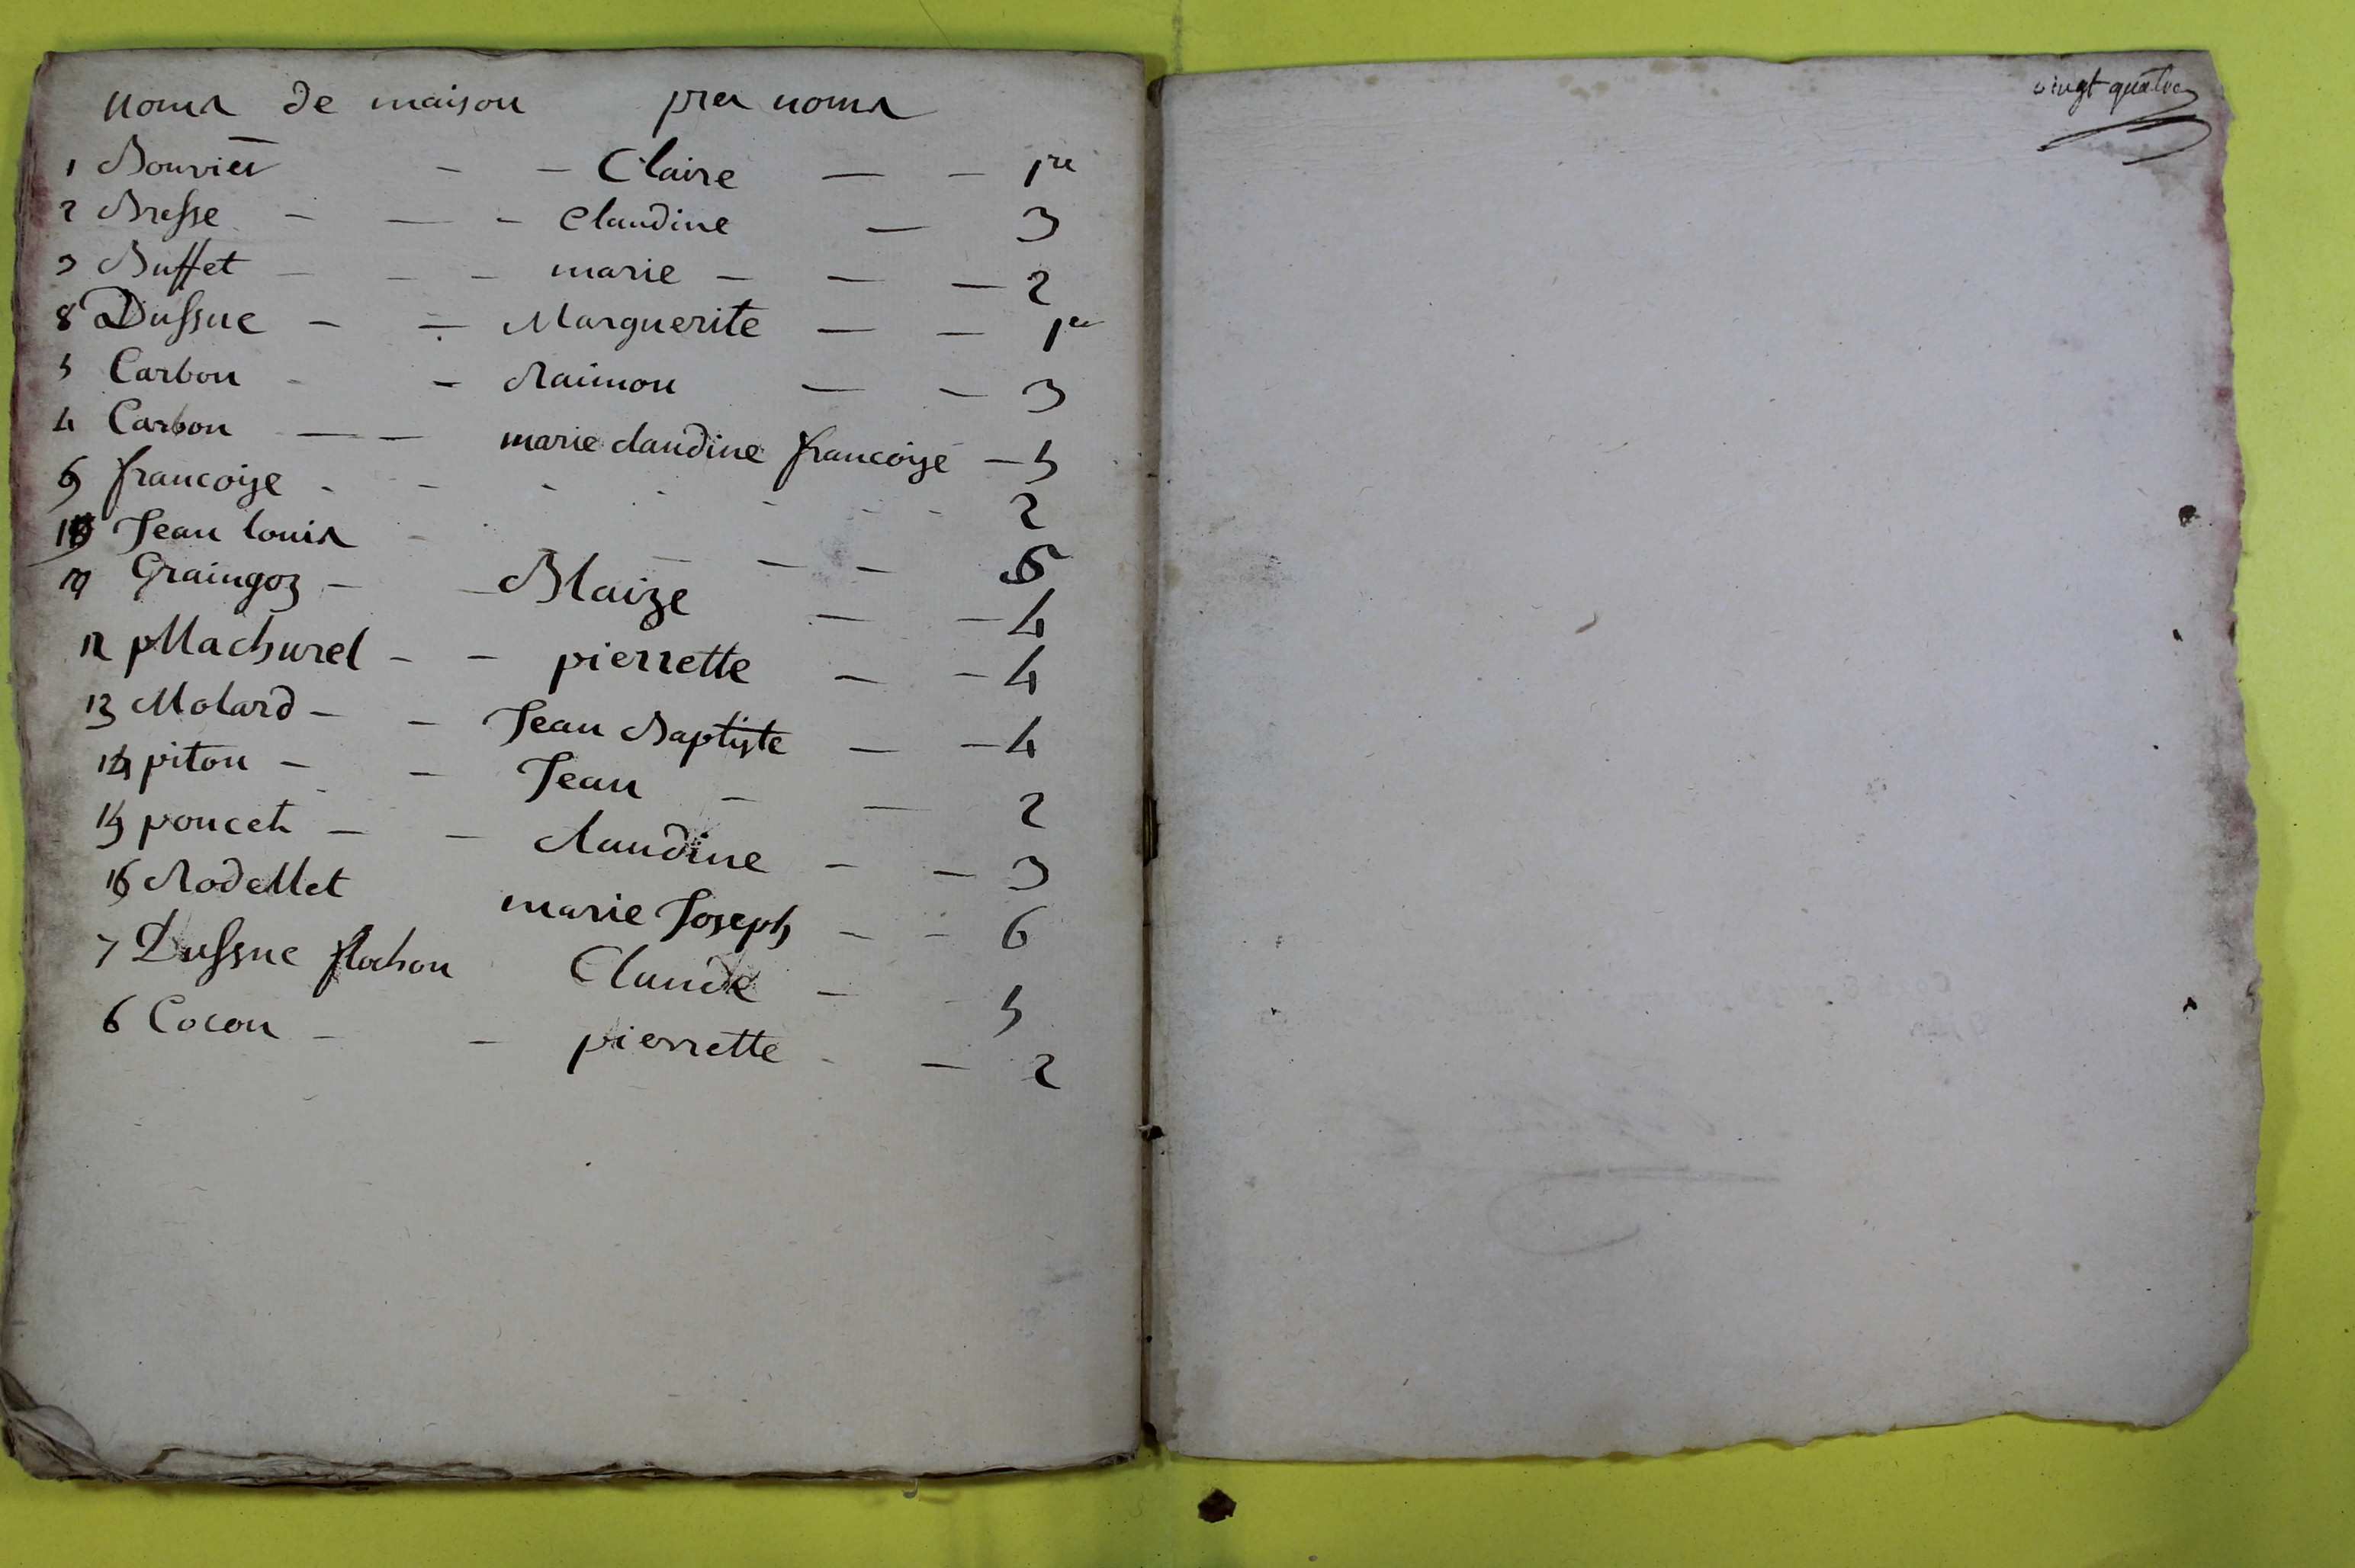 noms de maison pre noms
1 Bouvier - - Claire - - 1re
2 Bresse - - - Claudine - 3
3 Buffet - - - marie - - - 2
8 Dussuc - - Marguerite - - 1re
5 Carbon - - Raimon - - 3
4 Carbon - - marie claudine francoise - 5
9 francoise - - - - - - - 2
Jean louis - - - - 5
Graingoz - - Blaize - - 4
12 Machurel - - pierrette - - 4
13 Molard - - Jean Baptiste - - 4
14 piton - - Jean - - 2
15 poncet - - claudine - - 3
16 Rodellet marie Joseph - - 6
7 Dussuc flochon Claude - - 5
6 Cocon - - pierrette - - 2
vingt quatre